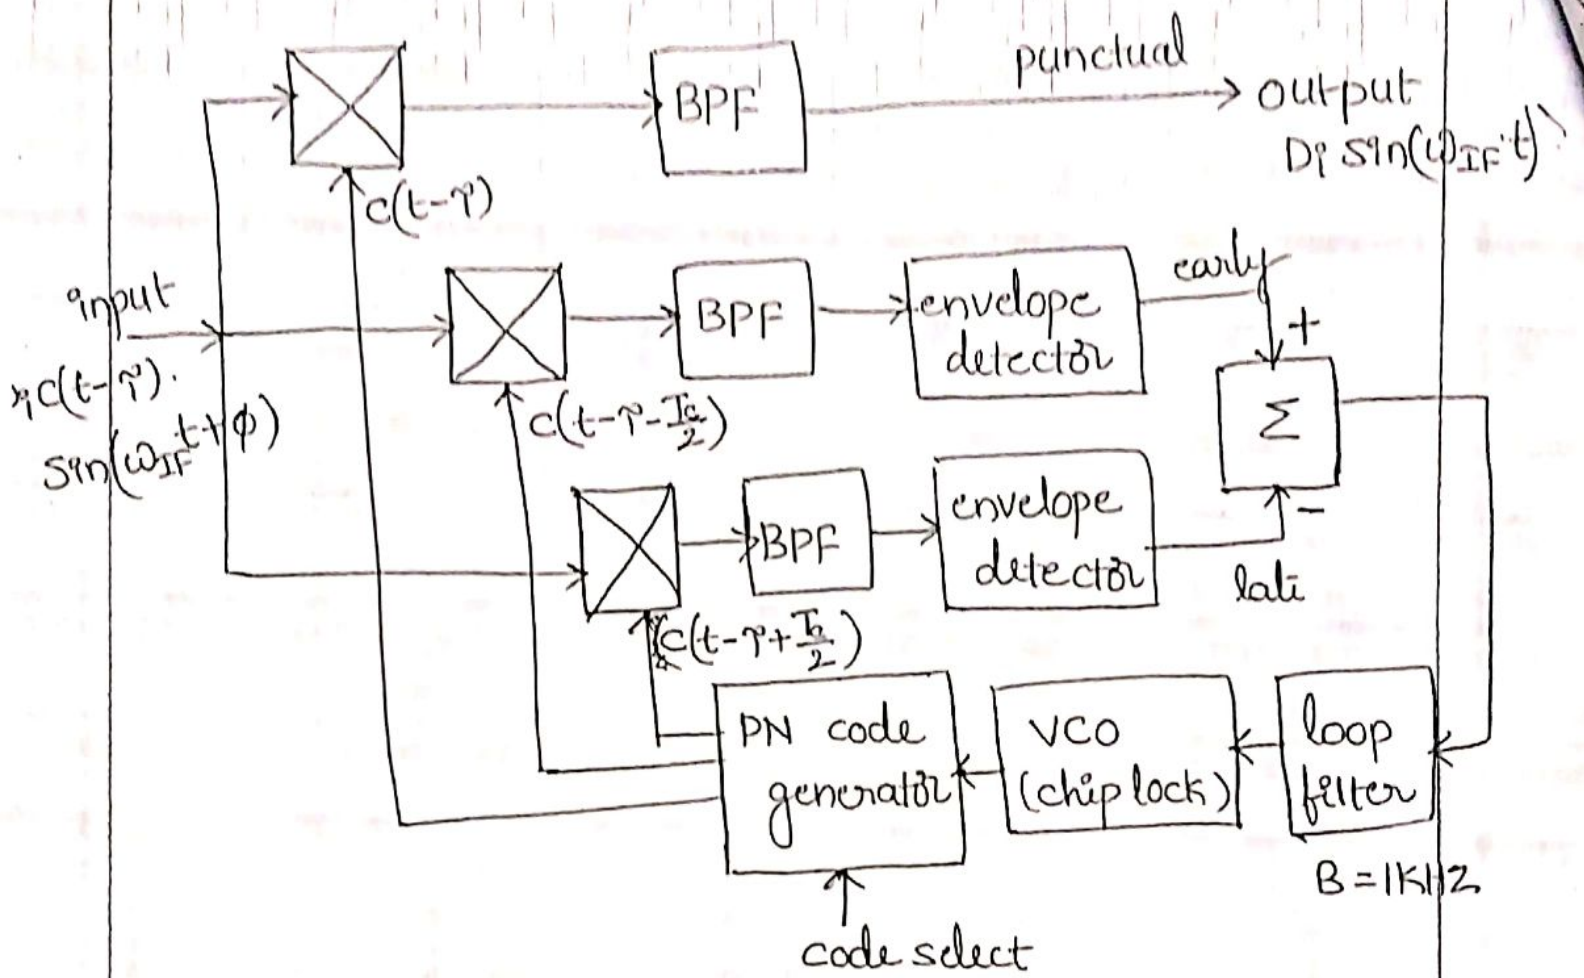 punctual
BPF
output
Di sin(ωIF t)
c(t-τ)
input
early
BPF
envelope
detector
+
c(t-τ).
sin(ωIF t+ϕ)
c(t-τ-Tc/2)
Σ
BPF
envelope
detector
-
late
c(t-τ+Tc/2)
PN code
generator
VCO
(chip lock)
loop
filter
B = 1KHz
code select